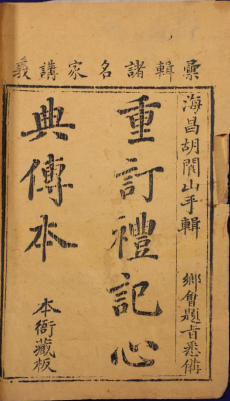 彙輯諸名家講義
海昌胡闇山手輯　鄉會題旨悉備
重訂禮記心
典傳本
本衙藏板